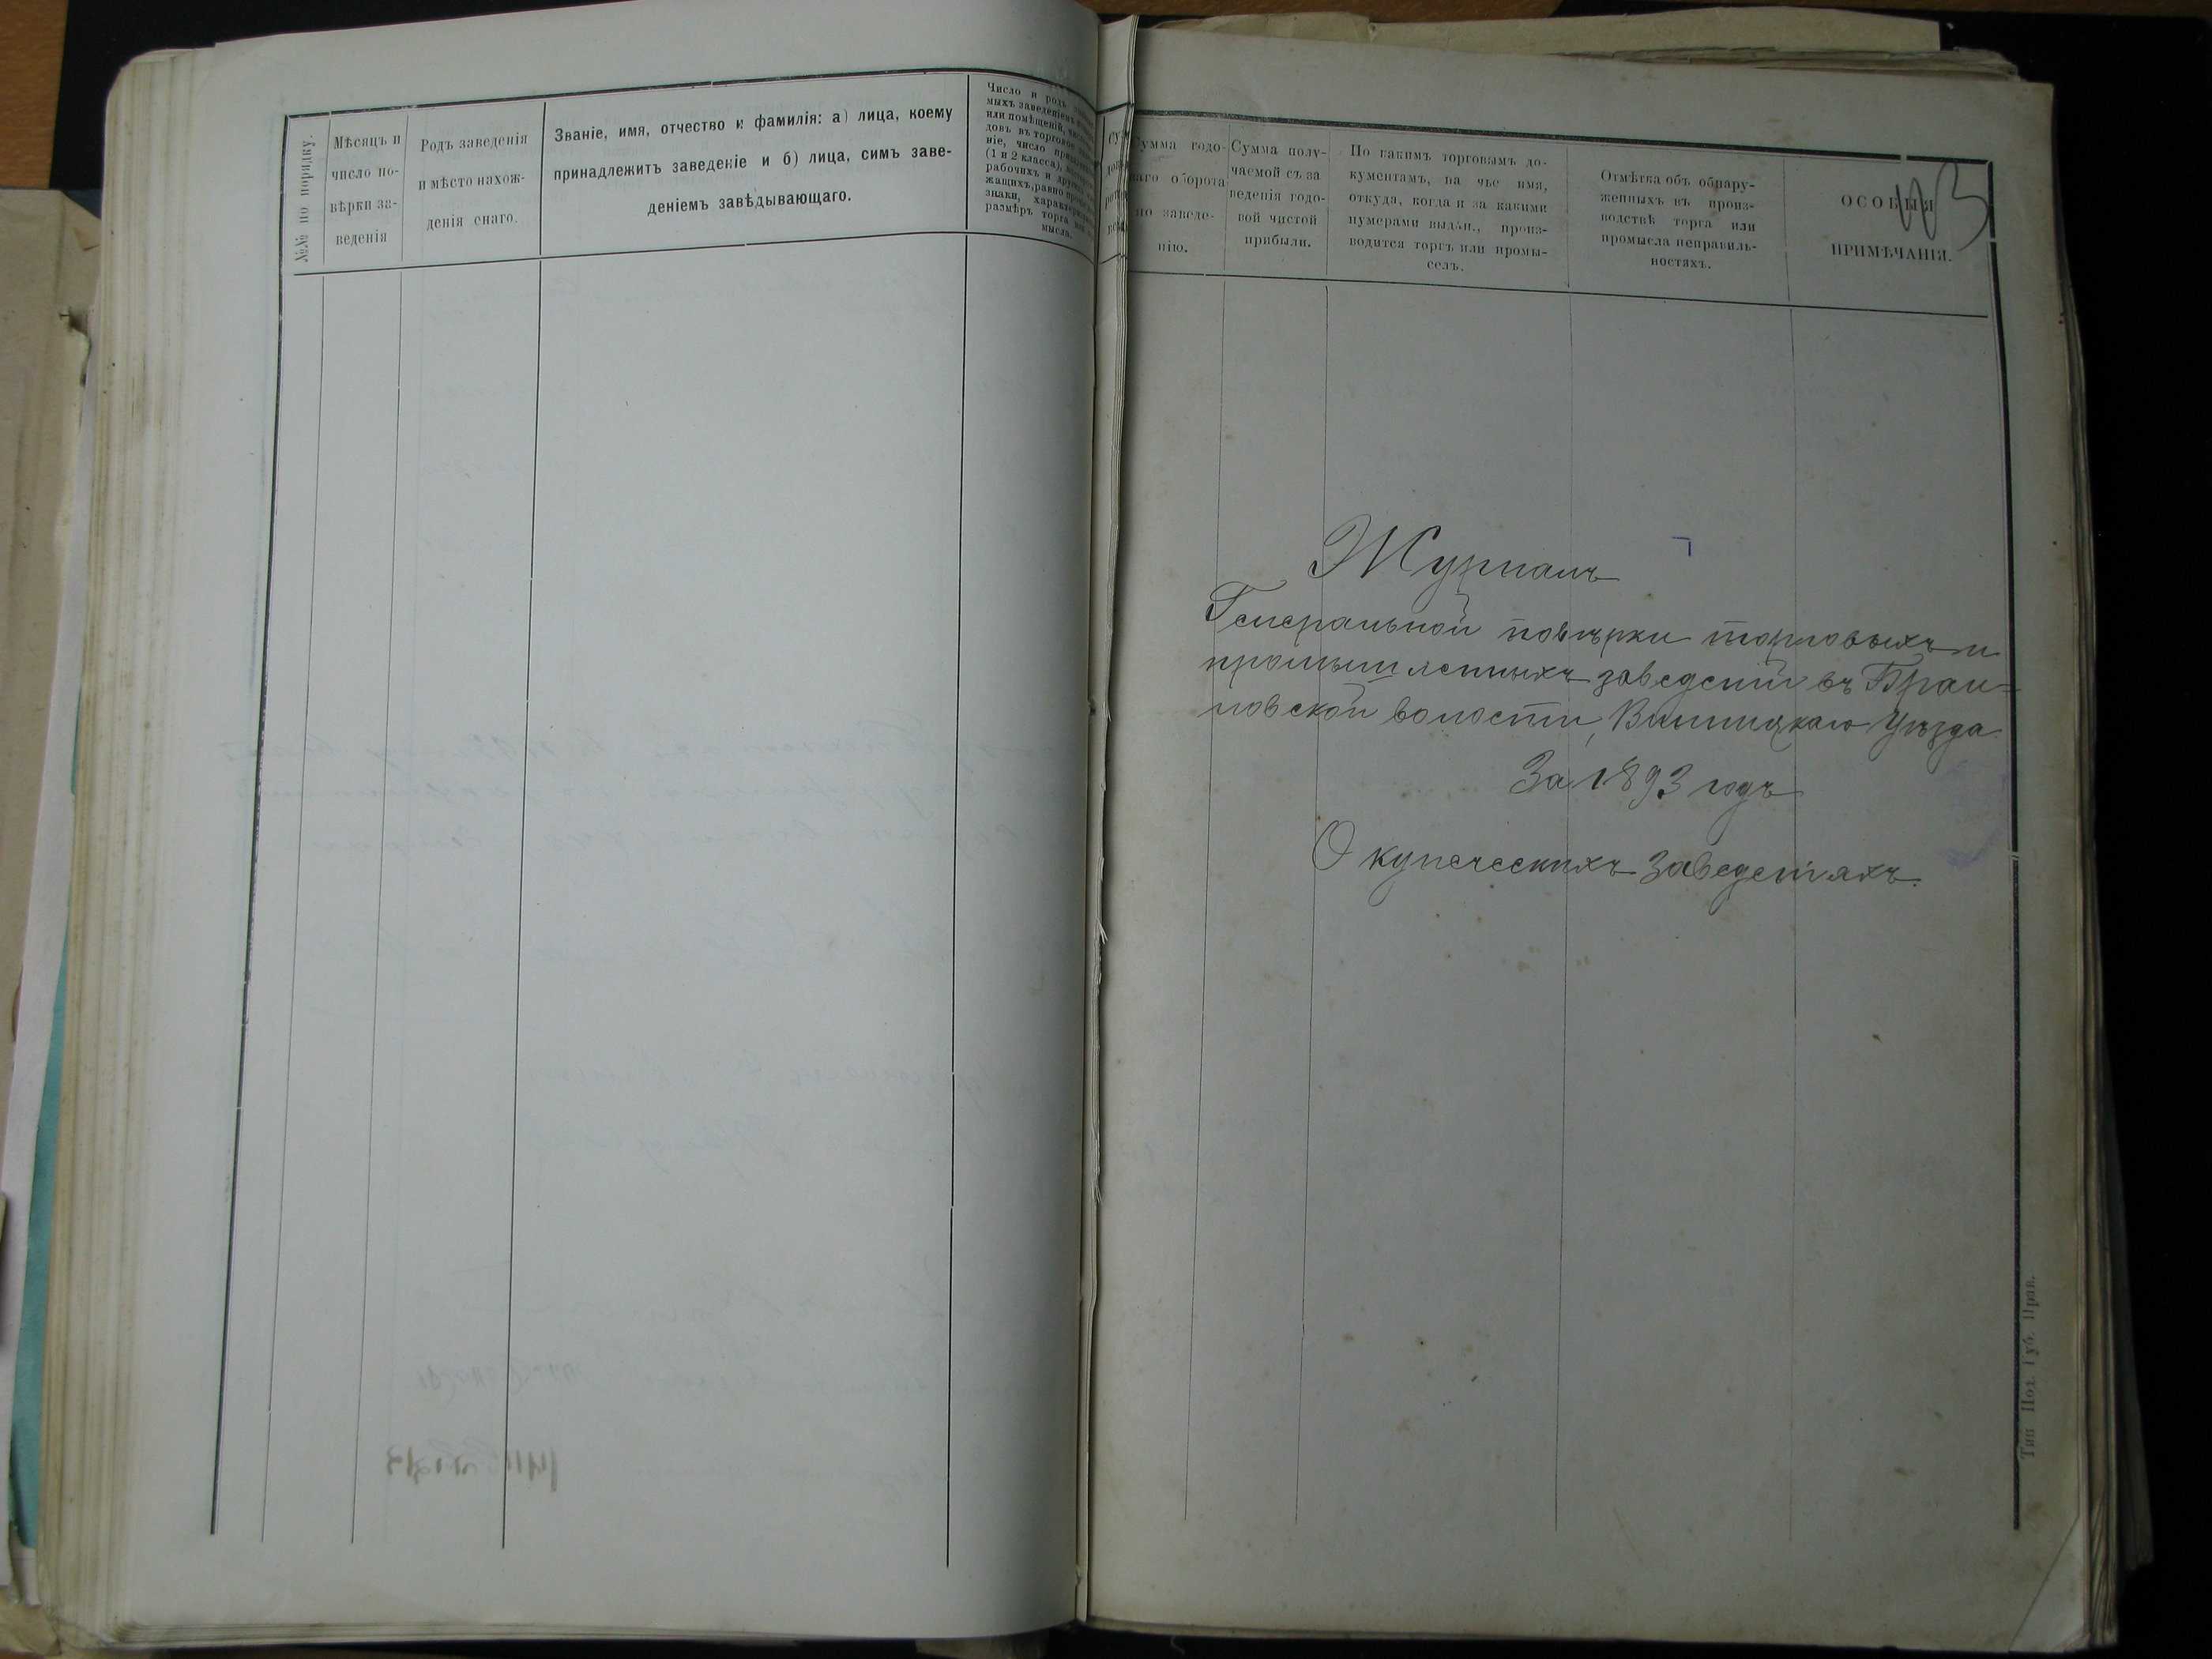 №№ по порядку.
Мѣсяцъ и
число по-
вѣрки за-
веденія
Родъ заведенія
и мѣсто нахож-
денія онаго.
Званіе, имя, отчество и фамилія: а) лица, коему
принадлежитъ заведеніе и б) лица, симъ заве-
деніемъ завѣдывающаго.
Число и родъ
мыхъ заведеніемъ
или помѣщеній,
довъ въ торговое
ніе, число
(1 и 2 класса),
рабочихъ и
жащихъ, равно
знаки,
размѣръ торга
мысла.
Сумма годо-
ваго оборота
по заведе-
нію.
Сумма полу-
чаемой съ за
веденія годо-
вой чистой
прибыли.
По какимъ торговымъ до-
кументамъ, на чье имя,
откуда, когда и за какими
нумерами выдан., произ-
водится торгъ или промы-
селъ.
Отмѣтка объ обнару-
женныхъ въ произ-
водствѣ торга или
промысла неправиль-
ностяхъ.
ОСОБЫЯ
ПРИМѢЧАНІЯ.
Журналъ
Генеральной повѣрки торговыхъ и
промышленныхъ заведеній въ Браи-
ловской волости, Винницкаго Уѣзда
За 1893 годъ
О купеческихъ заведеніяхъ.
Тип Под. Губ. Прав.